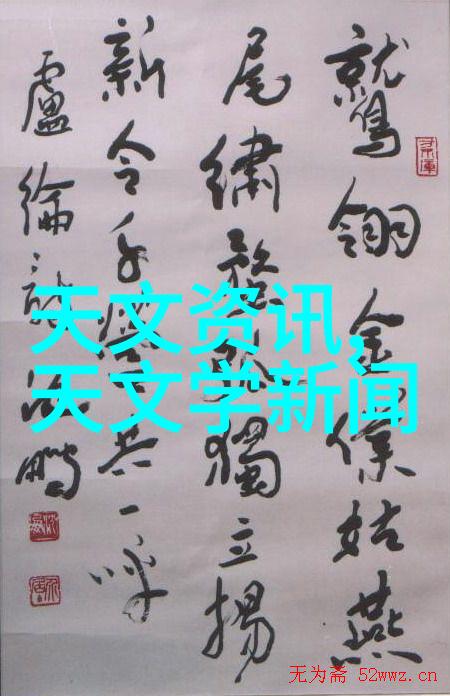 鷲翎金僕姑燕
尾繡蝥弧獨立揚
新令千營共一呼
盧綸詩沈鵬
天文资讯,
天文学新闻
无为斋 52wwz.cn